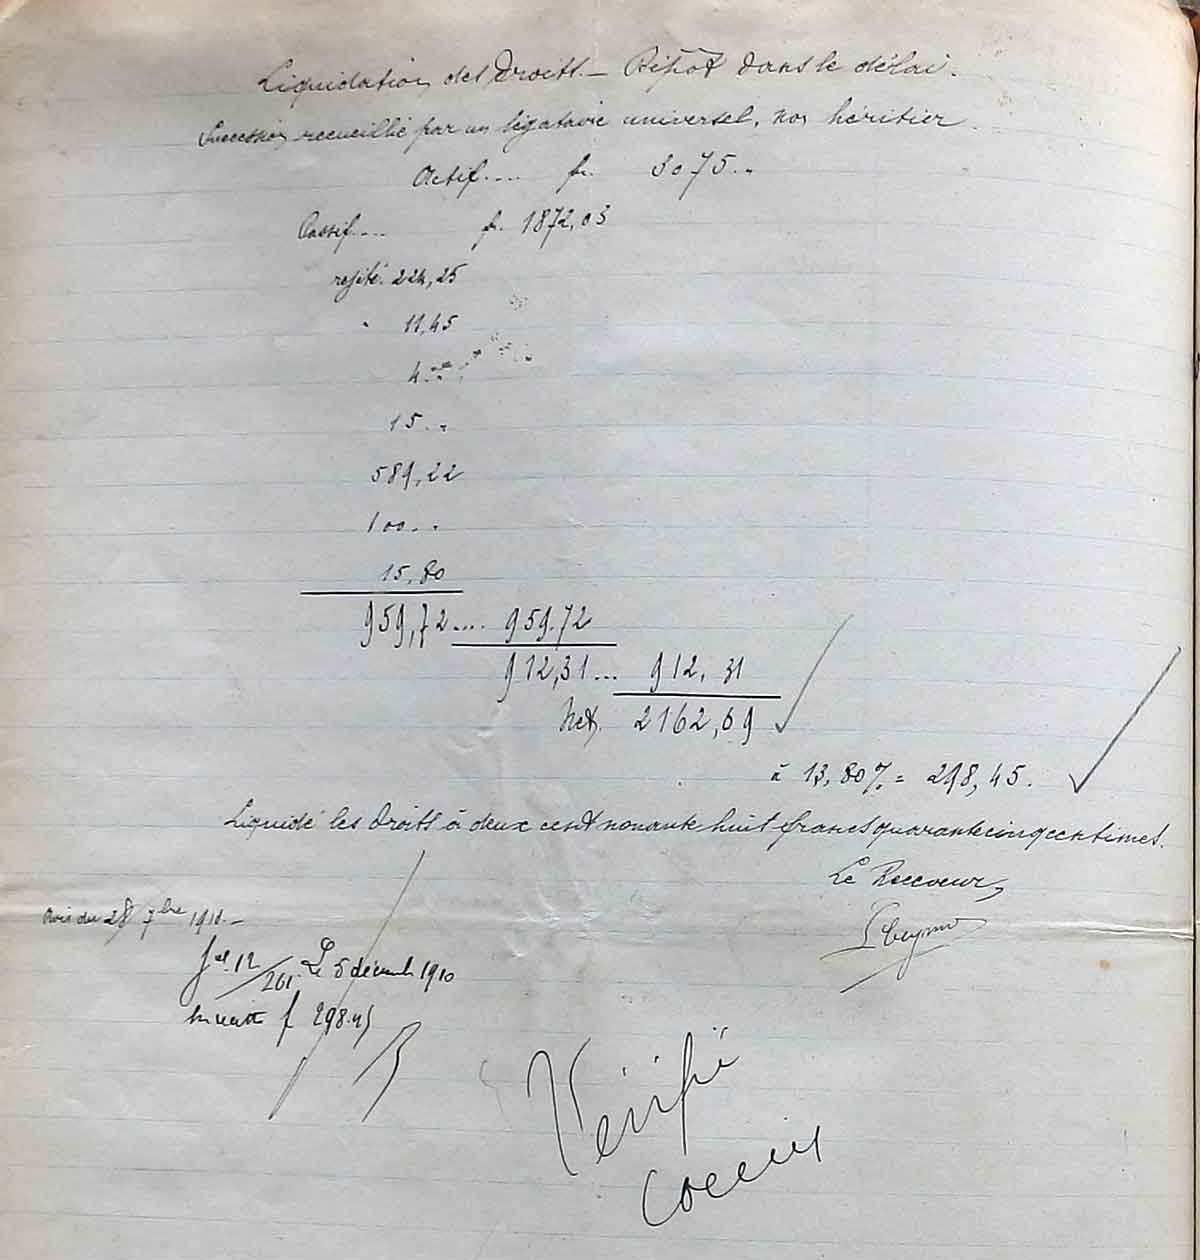 Liquidation des droits. — Dépôt dans le délai.
Succession recueillie par un légataire universel, non héritier.
Actif.... fr. 3075..
Passif.... fr. 1872,03
rejeté. 224,25
" 11,45
4..
15..
589,22
100..
15,80
959,72.... 959.72
912,31... 912,31
Net. 2162,69
à 13,80% = 298,45.
Liquidé les droits à deux cent nonante huit francs quarante cinq centimes.
Le Receveur,
Avis du 28 7bre 1910.—
12/261. Le 5 décemb 1910
f 298.45
Vérifié